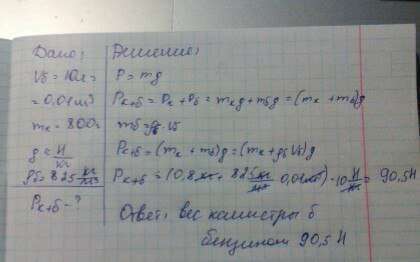 Дано:
Vб = 10л =
= 0,01м³
mк = 800г
g = Н/кг
ρб = 825 кг/м³
Pк+б - ?
Решение:
P = mg
Pк+б = Pк + Pб = mкg + mбg = (mк + mб)g
mб = ρб Vб
Pк+б = (mк + mб)g = (mк + ρб Vб)g
Pк+б = (0,8 кг + 825 кг/м³ · 0,01м³) · 10 Н/кг = 90,5Н
Ответ: вес канистры б
бензином 90,5 Н